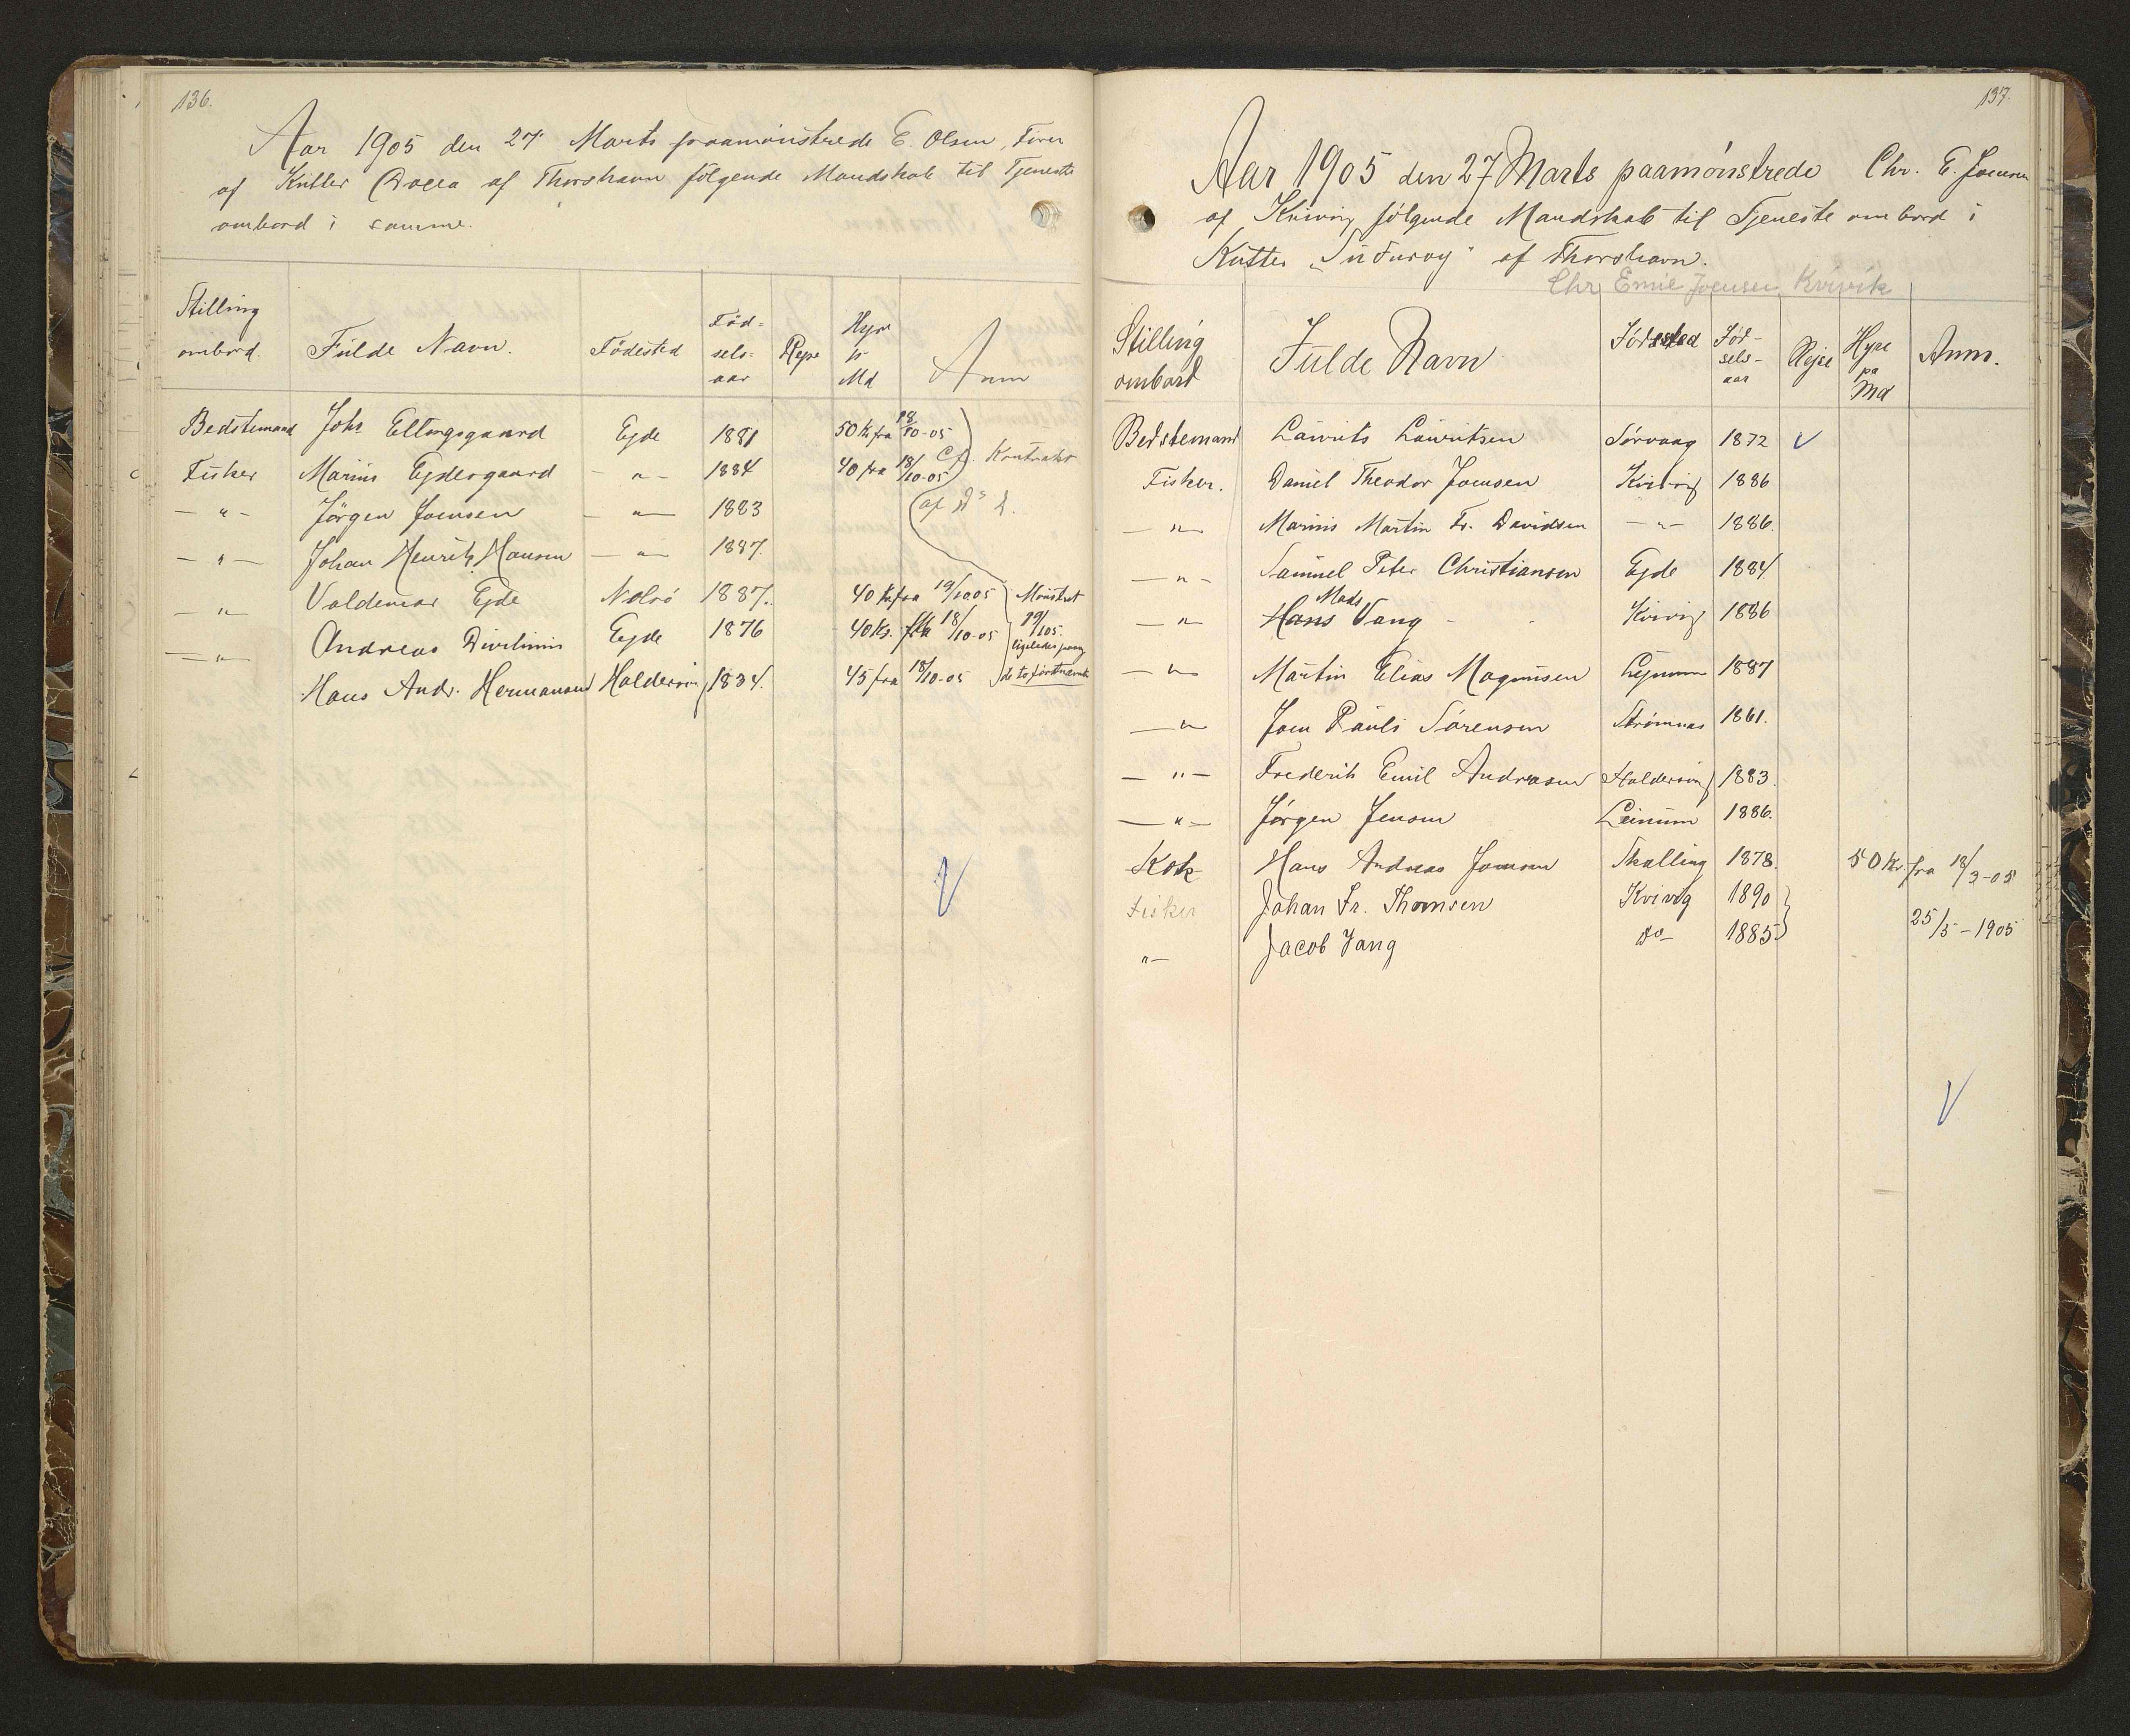 136.
Aar 1905 den 27 Marts paamønstrede E. Olsen, Fører
af Kutter af Thorshavn følgende Mandskab til Tjeneste
ombord i samme.
Stilling ombord. Fulde Navn. Födested Fød-sels-aar Rejse Hyre pr Md Anm
Bedstemand Johs Ejde 1881 50 Kr fra 18/10-05
Fisker Marius Ejdesgaard -"- 1884 40 fra 18/10-05 Cf. Kontrakt
-"- Jörgen Joensen -"- 1883 af D° d.
-"- Johan Henrik Hansen -"- 1887.
-"- Valdemar Ejde Nolsö 1887. 40 Kr fra 19/10 05 Mönstret
-"- Andreas Ejde 1876 40 Kr. fra 18/10-05 19/10 05.
ligeledes
Hans Andr. Hermansen Haldersvig 1834. 45 fra 18/10-05 de to förstnævnte
137.
Aar 1905 den 27 Marts paamønstrede Chr. E. Joensen
af Kvivig følgende Mandskab til Tjeneste ombord i
Kutter „Suduroy" af Thorshavn.
Chr Emil Joensen Kvivik
Stilling ombord Fulde Navn Fødested Fød-sels-aar Rejse Hyre pa Md Anm.
Bedstemand Laurits Lauritsen Sørvaag 1872 V
Fisker. Daniel Theodor Joensen Kvivig 1886
-"- Marius Martin Fr. Davidsen -"- 1886.
-"- Samuel Peter Christiansen Ejde 1884.
Mads
-"- Hans Vang Kvivig 1886
-"- Martin Elias Magnusen Lejnum 1887
-"- Joen Pauli Sørensen Strømnæs 1861.
-"- Frederik Emil Andreasen Haldersvig 1883.
-"- Jørgen Jensen Leinum 1886.
Kok Hans Andreas Joensen Skalling 1878. 50 Kr. fra 18/3-05
Fisker Johan Fr. Thomsen Kvivig 1890
"- Jacob Vang do- 1885 25/5-1905